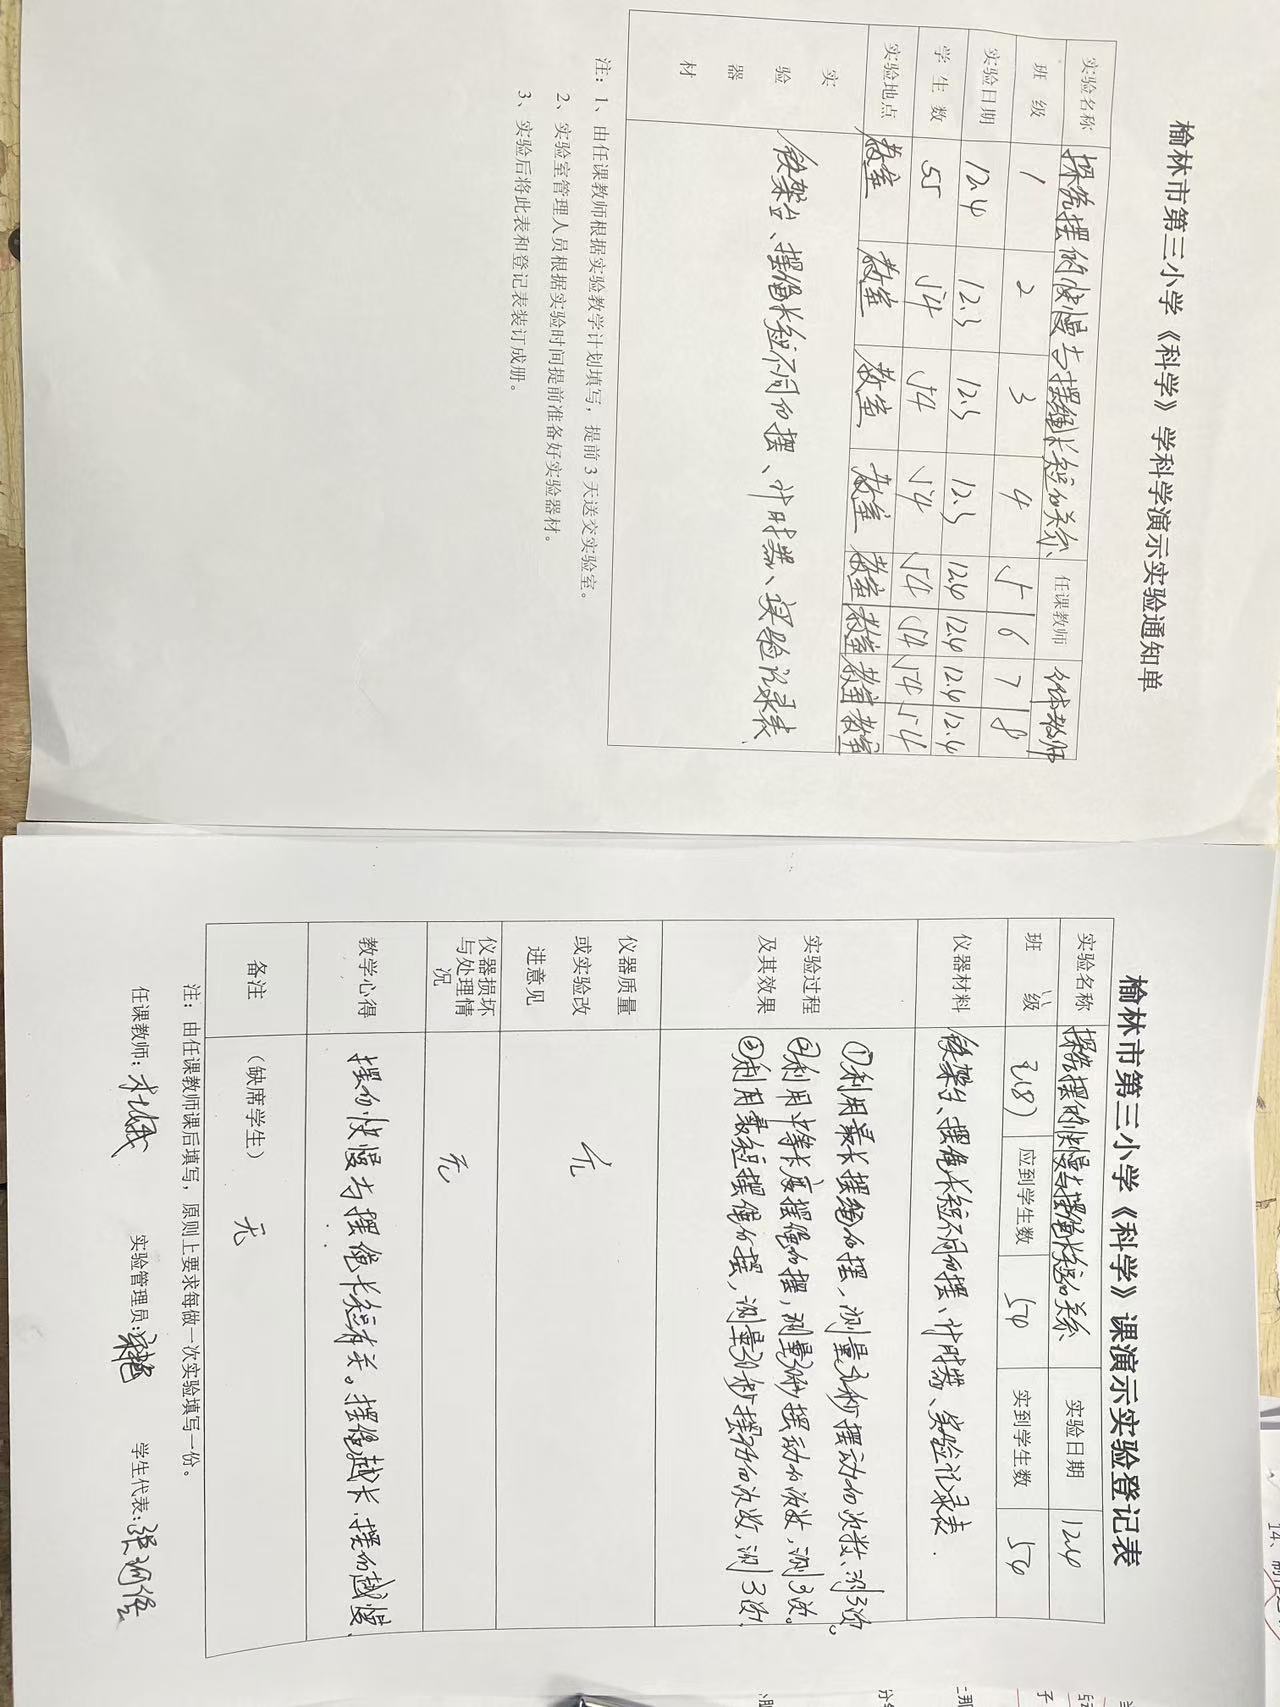 榆林市第三小学《科学》学科学演示实验通知单
实验名称 探究摆的快慢与摆绳长短的关系 任课教师 全体教师
班级 1 2 3 4 5 6 7 8
实验日期 12.4 12.3 12.3 12.3 12.4 12.4 12.4 12.4
学生数 55 54 54 54 54 54 54 54
实验地点 教室 教室 教室 教室 教室 教室 教室 教室
实验器材 铁架台、摆绳长短不同的摆、计时器、实验记录表
注：1、由任课教师根据实验教学计划填写，提前 3 天送交实验室。
2、实验室管理人员根据实验时间提前准备好实验器材。
3、实验后将此表和登记表装订成册。
榆林市第三小学《科学》课演示实验登记表
实验名称 探究摆的快慢与摆绳长短的关系 实验日期 12.4
班级 五(8) 应到学生数 54 实到学生数 54
仪器材料 铁架台、摆绳长短不同的摆、计时器、实验记录表.
实验过程及其效果 ①利用最长摆绳的摆，测量30秒摆动的次数，测3次。
②利用中等长度摆绳的摆，测量30秒摆动的次数，测3次。
③利用最短摆绳的摆，测量30秒摆动的次数，测3次.
仪器质量或实验改进意见 无
仪器损坏与处理情况 无
教学心得 摆的快慢与摆绳长短有关。摆绳越长.摆的越慢.
备注 （缺席学生） 无
注：由任课教师课后填写，原则上要求每做一次实验填写一份。
任课教师: 实验管理员: 学生代表: